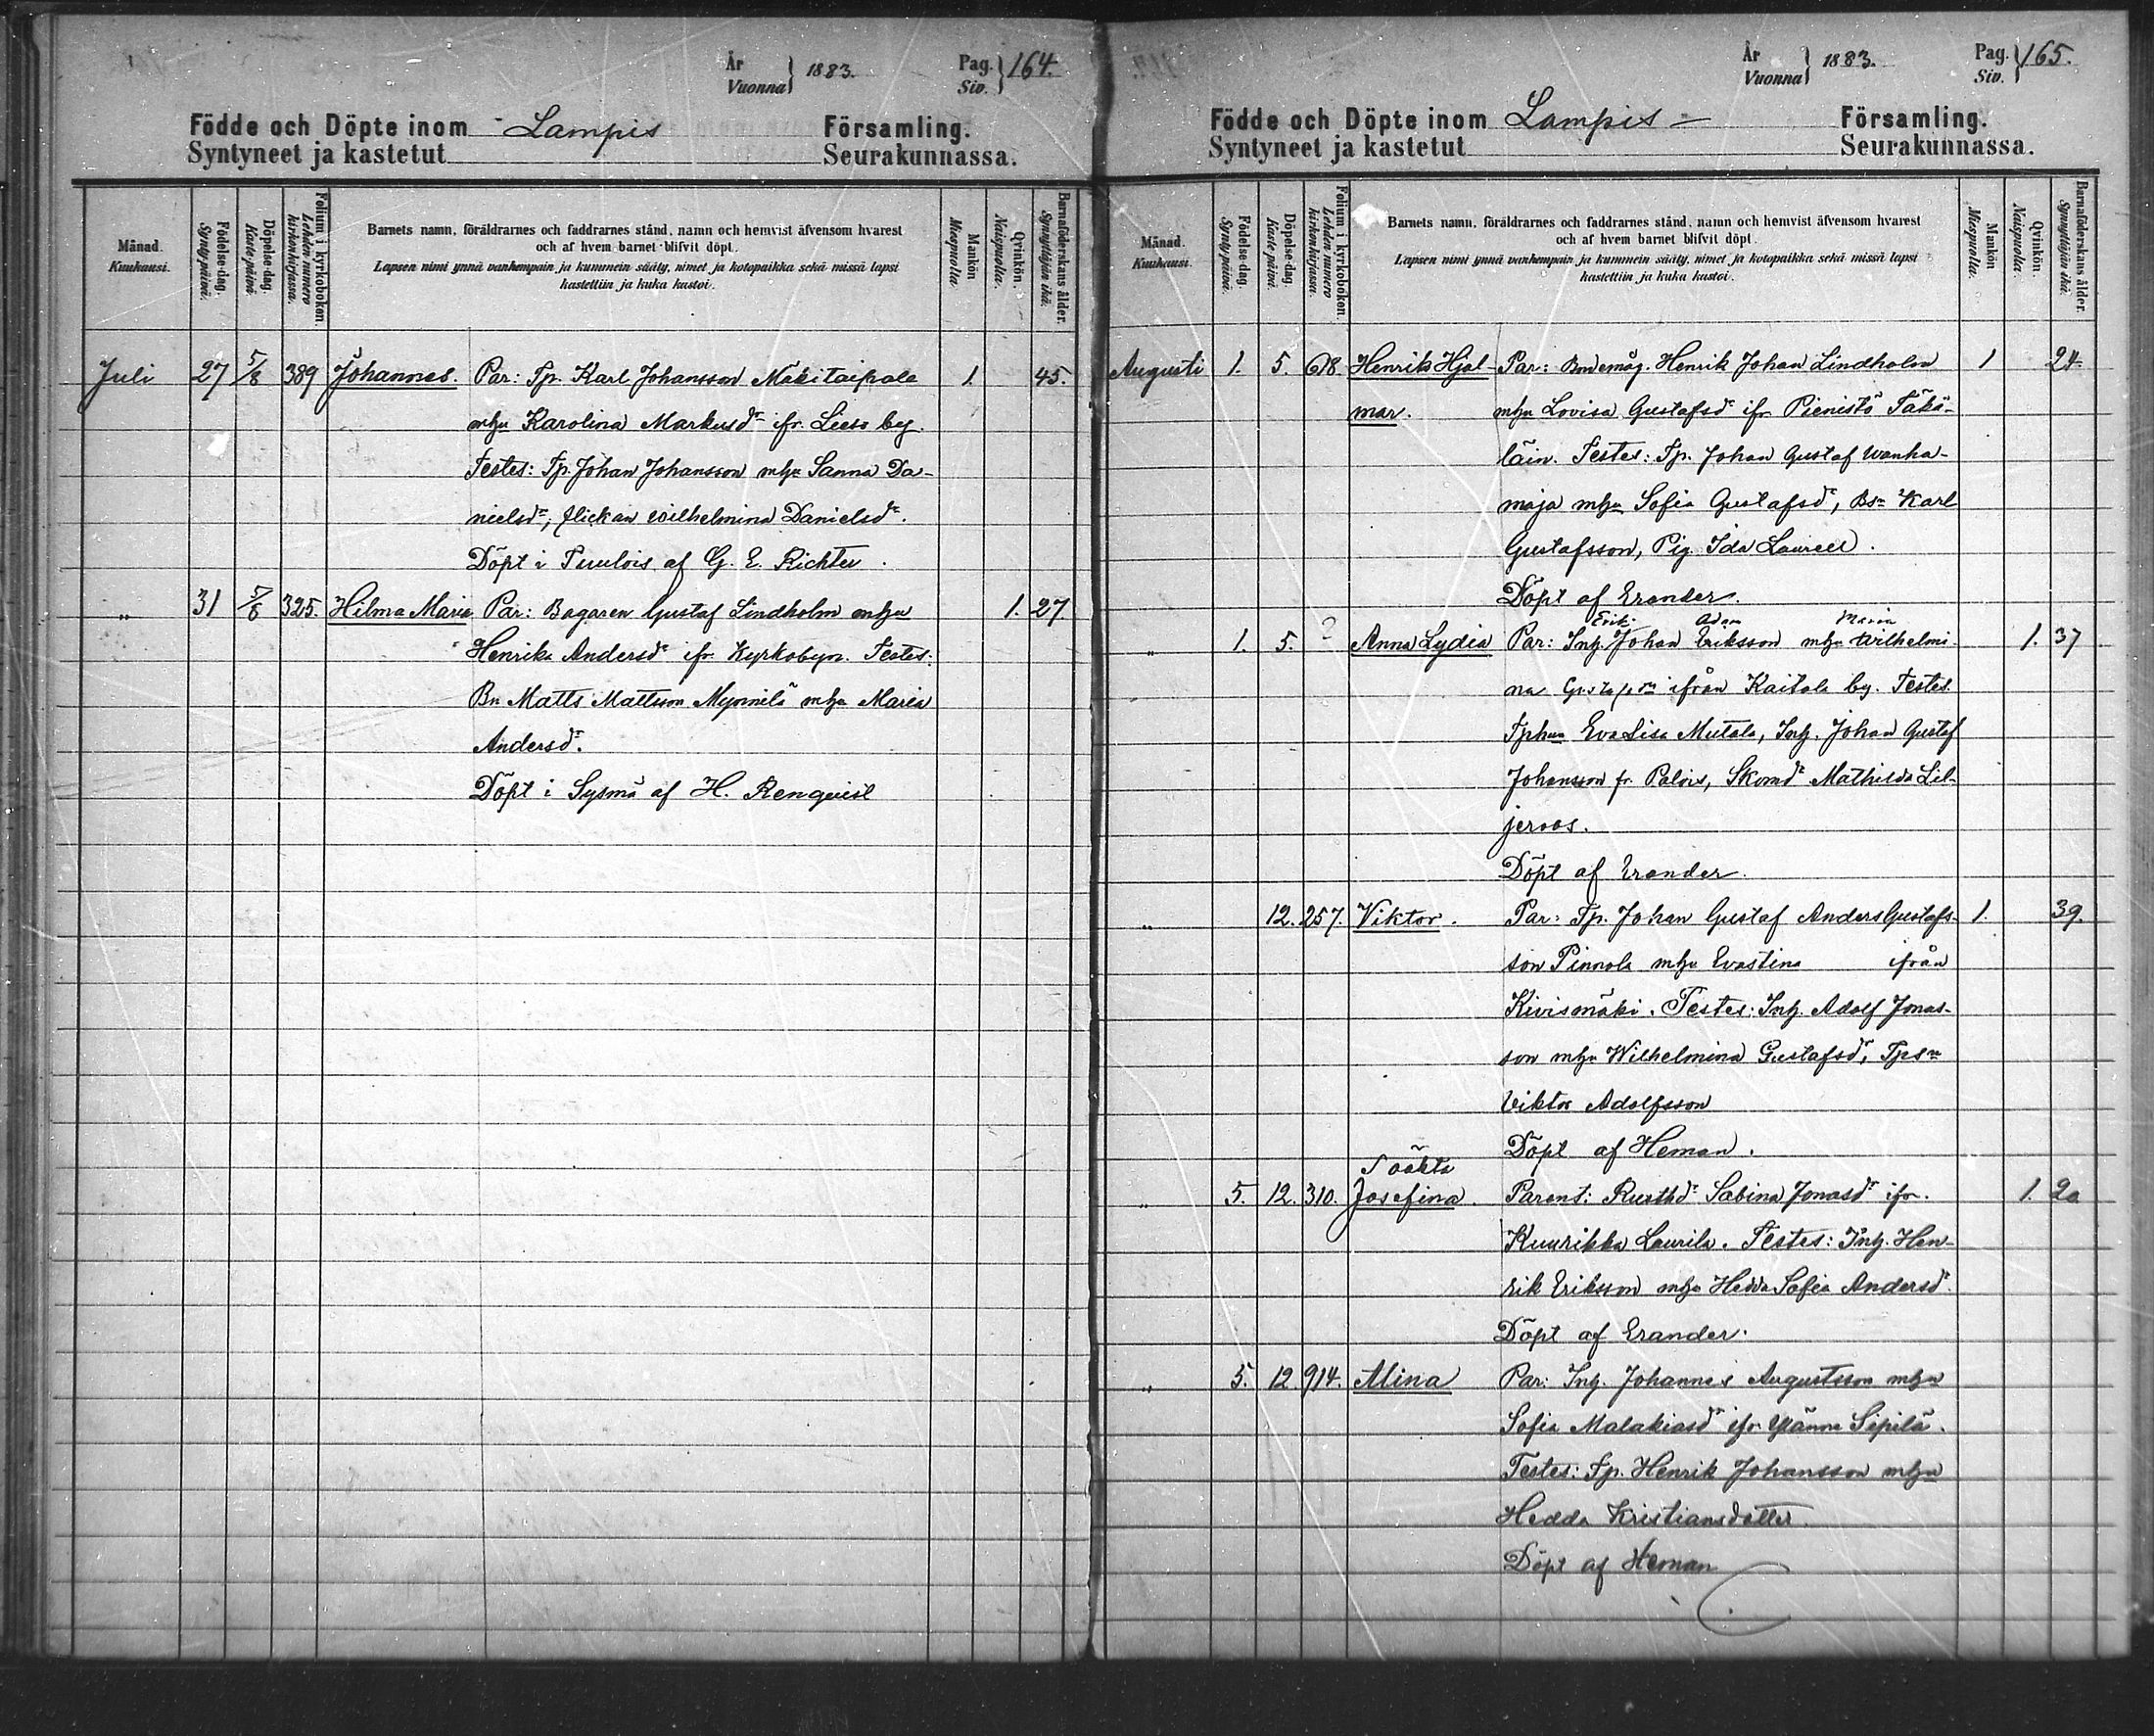 År
Vuonna } 1883.
Pag.
Siv. } 164.
Födde och Döpte inom Lampis Församling.
Syntyneet ja kastetut Seurakunnassa.
Månad.
Kuukausi.
Födelse-dag.
Synty-päivä.
Döpelse-dag.
Kaste-päivä.
Folium i kyrkoboken.
Lehden numero kirkonkirjassa.
Barnets namn, föräldrarnes och faddrarnes stånd, namn och hemvist äfvensom hvarest
och af hvem barnet blifvit döpt.
Lapsen nimi ynnä vanhempain ja kummein sääty, nimet ja kotopaikka sekä missä lapsi
kastettiin ja kuka kastoi.
Mankön
Miespuolta.
Qvinkön.
Naispuolta.
Barnaföderskans ålder.
Synnyttäjän ikä.
Juli 27 5/8 389 Johannes. Par: Tp. Karl Johansson Mäkitaipale 1. 45.
mhu Karolina Markusdr ifr. Lieso by.
Testes: Tp. Johan Johansson mhu Sanna Da-
nielsdr, flickan Wilhelmina Danielsdr.
Döpt i Tuulois af G. E. Richter.
„ 31 5/8 325. Hilma Maria Par: Bagaren Gustaf Lindholm mhu 1. 27.
Henrika Andersdr ifr. Kyrkobyn. Testes:
Bn Matts Mattsson mhu Maria
Andersdr.
Döpt i Sysmä af H. Renquist
År
Vuonna } 1883.
Pag.
Siv. } 165.
Födde och Döpte inom Lampis Församling.
Syntyneet ja kastetut Seurakunnassa.
Månad.
Kuukausi.
Födelse-dag.
Synty-päivä.
Döpelse-dag.
Kaste-päivä.
Folium i kyrkoboken.
Lehden numero kirkonkirjassa.
Barnets namn, föräldrarnes och faddrarnes stånd, namn och hemvist äfvensom hvarest
och af hvem barnet blifvit döpt.
Lapsen nimi ynnä vanhempain ja kummein sääty, nimet ja kotopaikka sekä missä lapsi
kastettiin ja kuka kastoi.
Mankön
Miespuolta.
Qvinkön.
Naispuolta.
Barnaföderskans ålder.
Synnyttäjän ikä.
Augusti 1. 5. 618. Henrik Hjal- Par: Bndemåg. Henrik Johan Lindholm 1 24.
mar. mhu Lovisa Gustafsdr ifr. Pienistö Täkä-
läin. Testes: Tp. Johan Gustaf Wanha-
maja mhu Sofia Gustafsdr, Bsn Karl
Gustafsson, Pig. Ida Laurell.
Döpt af Erander.
Erik Adam Maria
„ 1. 5. ? Anna Lydia Par: Inh. Johan Eriksson mhu Wilhelmi- 1. 37
na ifrån Kaitala by. Testes
Tphun Eva Lisa Mutala, Inh. Johan Gustaf
Johansson fr. Palois, Skomdr Mathilda Lil-
jeroos.
Döpt af Erander.
„ 12. 257. Viktor. Par: Tp. Johan Gustaf Anders Gustafs- 1. 39.
son Pinnola mhu Evastina ifrån
Kivismäki. Testes: Inh. Adolf Jonas-
son mhu Wilhelmina Gustafsdr, Tpsn
Viktor Adolfsson
Döpt af Heman.
Oäkta
„ 5. 12. 310. Josefina. Parent: Rusthdr Sabina Jonasdr ifr. 1. 20
Kuurikka Laurila. Testes: Inh. Hen-
rik Eriksson mhu Hedda Sofia Andersdr.
Döpt af Erander.
„ 5. 12. 914. Mina Par: Inh. Johannes Augustsson mhu
Sofia Malakiasdr ifr. Ylänne Sipilä.
Testes: Tp. Henrik Johansson mhu
Hedda Kristiansdotter.
Döpt af Heman